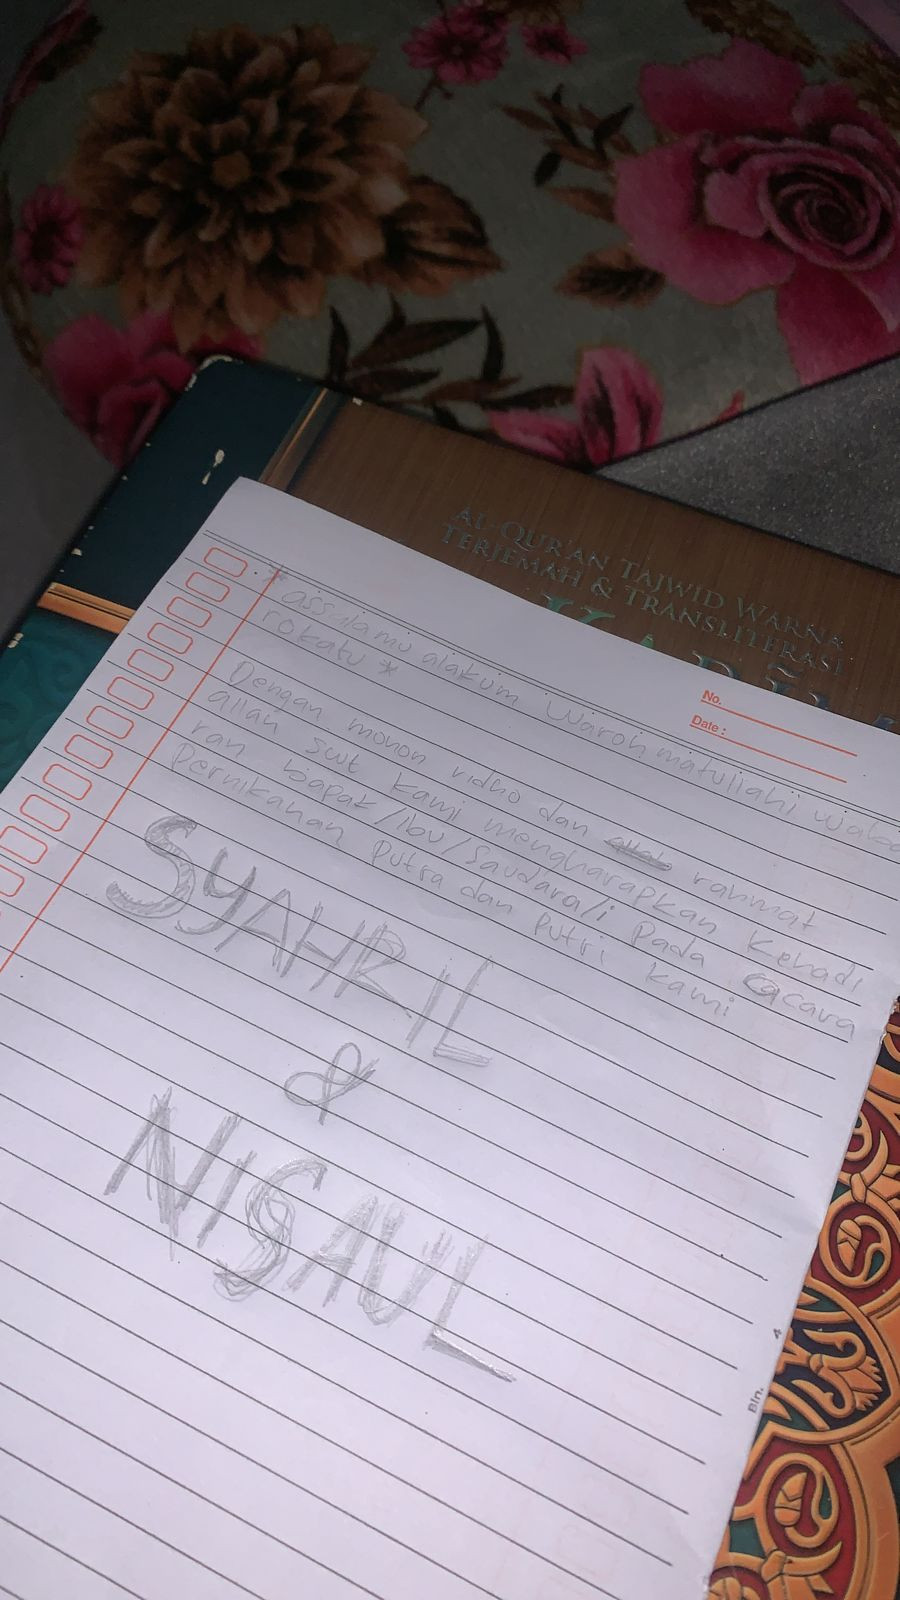 AL-QUR'AN TAJWID WARNA
TERJEMAH & TRANSLITERASI
No.
Date :
* assalamu alaikum Waroh matullahi waba
rokatu *
Dengan mohon ridho dan rahmat
allah swt kami mengharapkan Kehadi
ran bapak/ibu/Saudara/i Pada acara
Pernikahan Putra dan Putri kami
SYAHRIL
&
NISAUL
Bln. 4